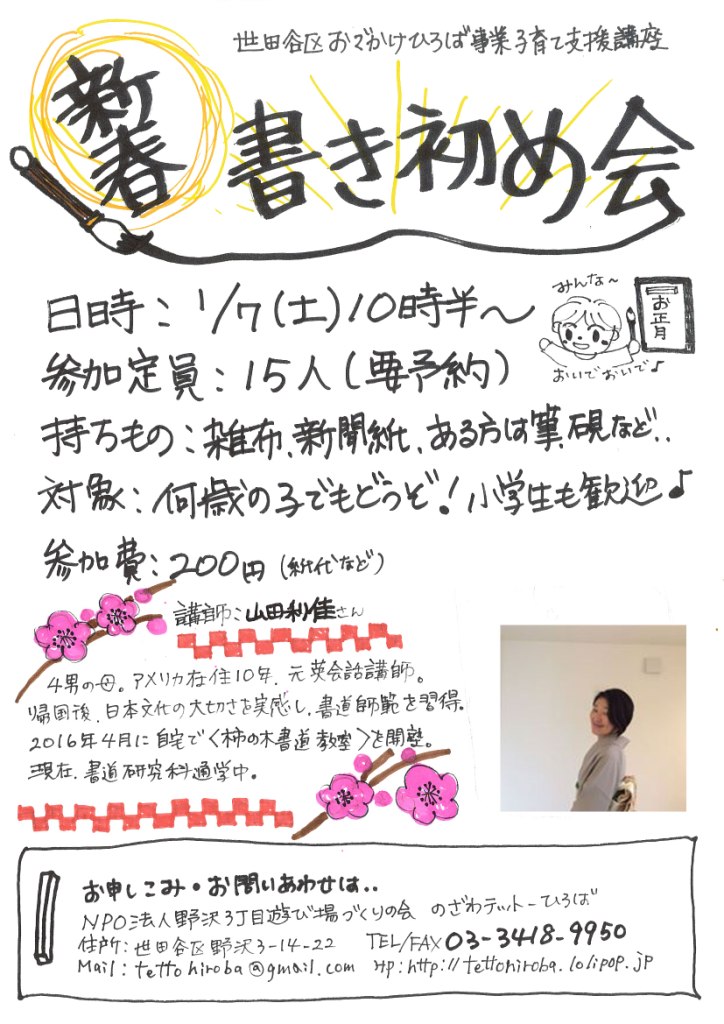 世田谷区おでかけひろば事業子育て支援講座
新春
書き初め会
日時：1/7（土）10時半～
参加定員：15人（要予約）
持ちもの：雑布、新聞紙、ある方は筆、硯など..
対象：何歳の子でもどうぞ！小学生も歓迎♪
参加費：200円（紙代など）
みんな～
お正月
おいでおいで♪
講師：山田利佳さん
4男の母。アメリカ在住10年、元英会話講師。
帰国後、日本文化の大切さを実感し、書道師範を習得。
2016年4月に自宅で〈柿の木書道教室〉を開塾。
現在、書道研究科通学中。
お申しこみ・お問いあわせは..
NPO法人野沢3丁目遊び場づくりの会 のざわテットーひろば
住所：世田谷区野沢3-14-22 TEL/FAX 03-3418-9950
Mail：tettohiroba@gmail.com HP：http://tettohiroba.lolipop.jp